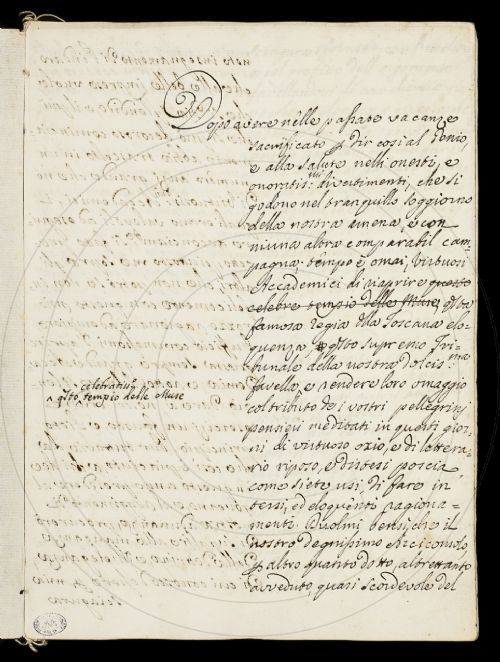 Dopo avere nelle passate vacanze
sacrificato p dir cosi al Genio,
e alla salute nelli onesti, e
onoratis:mi divertimenti, che si
godono nel tranquillo soggiorno
della nostra amena, e con
niuna altra comparabil cam-
pagna; tempo è omai, Virtuosi
Accademici di riaprire questo
celebre tempio delle Muse, qsta
famosa Regia della Toscana elo-
quenza, e qsto supremo Tri-
bunale della nostra dolcis:ma
favella, e rendere loro omaggio
col tributo de i vostri pellegrini
pensieri meditati in questi gior-
ni di virtuoso ozio, e di lettera-
rio riposo, e distesi poscia,
come siete usi, di fare in
tersi, ed eloquenti ragiona-
menti. Duolmi bensi, che il
nostro degnissimo Arciconsolo,
p altro quanto dotto, altrettanto
avveduto quasi scordevole del
celebratiss:o
qsto tempio delle Muse